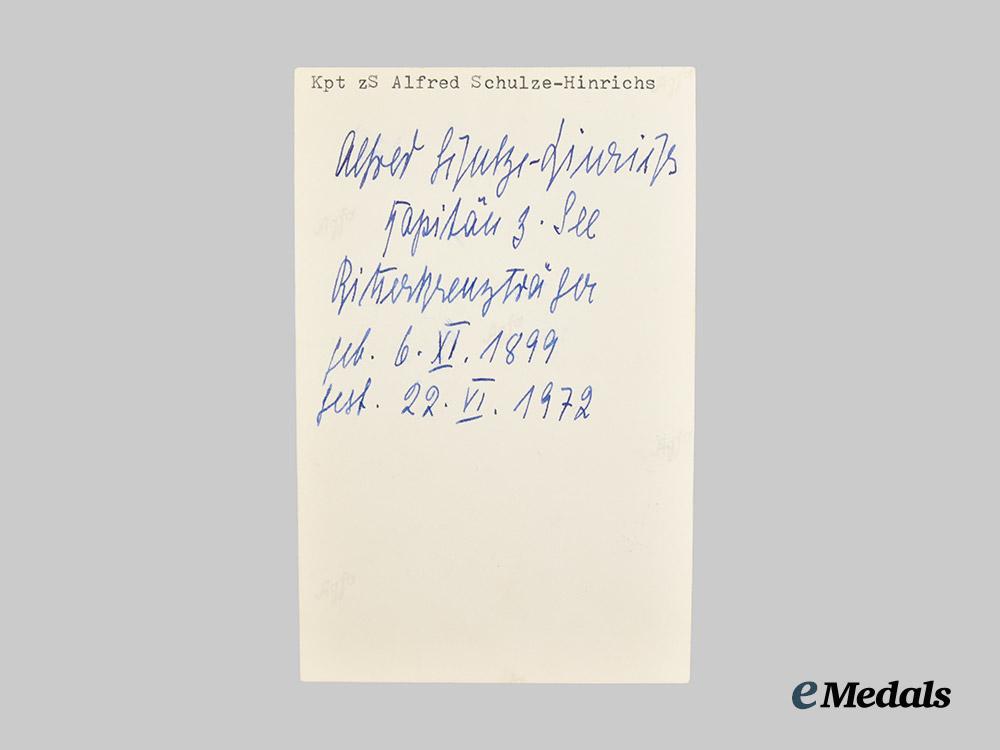 Kpt zS Alfred Schulze-Hinrichs
Alfred Schulze-Hinrichs
Kapitän z. See
Ritterkreuzträger
geb. 6. XI. 1899
gest. 22. VI. 1972
eMedals